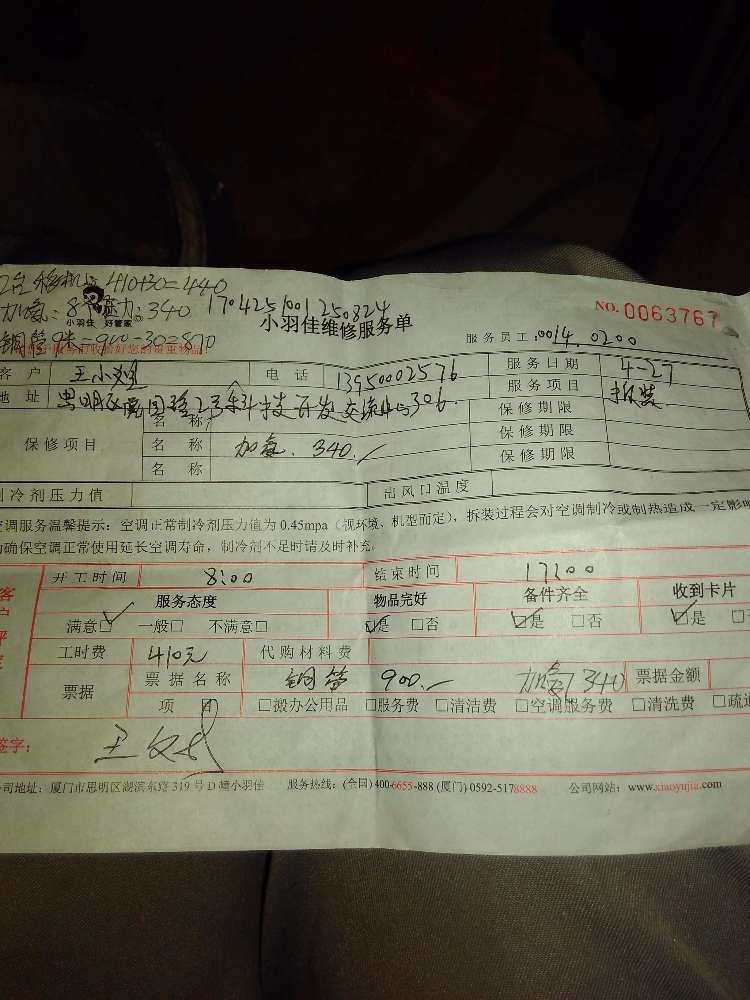 2台移机：410+30=440
加氨：8个压力。340 170425100125.0324
小羽佳 好管家
小羽佳维修服务单
NO. 0063767
铜管9米=900-30=870
服务员工：0014.0200
客户 王小姐 电话 13950002576 服务日期 4-27
地址 思明区 2号科技开发交流 306. 服务项目 拆装
保修项目 名称 保修期限
名称 加氨.340. 保修期限
名称 保修期限
制冷剂压力值 出风口温度
空调服务温馨提示：空调正常制冷剂压力值为 0.45mpa（视环境、机型而定），拆装过程会对空调制冷或制热造成一定影
确保空调正常使用延长空调寿命，制冷剂不足时请及时补充。
开工时间 8:00 结束时间 17:00
服务态度 物品完好 备件齐全 收到卡片
满意☑ 一般□ 不满意□ ☑是 □否 ☑是 □否 ☑是 □
工时费 410元 代购材料费
票据 票据名称 铜管 900. 加氨340 票据金额
项目 □搬办公用品 □服务费 □清洁费 □空调服务费 □清洗费 □疏通
签字：
公司地址：厦门市思明区湖滨东路 319 号 D 幢小羽佳 服务热线：(全国) 400-6655-888 (厦门) 0592-5178888 公司网站：www.xiaoyujia.com